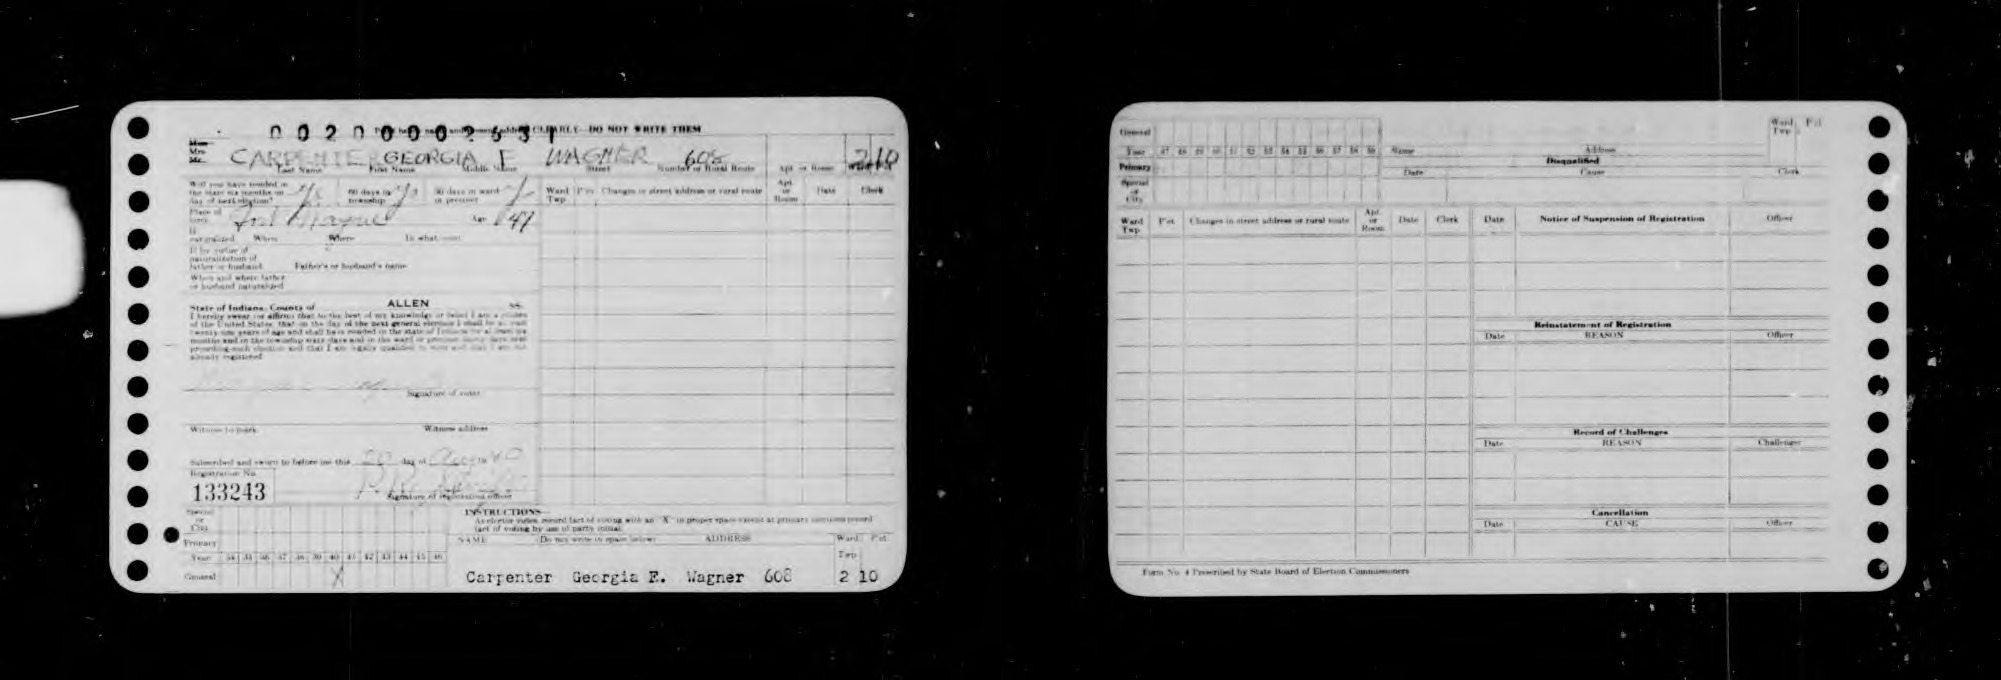 00200002631
CLEARLY—DO NOT WRITE THEM
Miss
Mrs.
Mr.
CARPENTER GEORGIA E WAGNER 608 2 10
Last Name First Name Middle Name Street Number or Rural Route Apt. or Room
Will you have resided in
the state six months on
day of next election? Yes 60 days in
township Yes 30 days in ward
or precinct
Place of
birth Fort Wayne Age 47
If
naturalized When Where In what court
If by virtue of
naturalization of
father or husband Father's or husband's name
When and where father
or husband naturalized
Ward
Twp. Pct. Changes in street address or rural route Apt.
or
Room Date Clerk
State of Indiana, County of ALLEN ss.
I hereby swear (or affirm) that to the best of my knowledge or belief I am a citizen
of the United States, that on the day of the next general election I shall be at least
twenty-one years of age and shall have resided in the state of Indiana for at least six
months and in the township sixty days and in the ward or precinct thirty days next
preceding such election and that I am legally qualified to vote and that I am not
already registered
Signature of voter
Witness to mark Witness address
Subscribed and sworn to before me this 20 day of Aug 1940
Signature of registration officer
Registration No.
133243
Special
or
City
Primary
Year 34 35 36 37 38 39 40 41 42 43 44 45 46
General X
INSTRUCTIONS—
As elector votes, record fact of voting with an "X" in proper space except at primary elections record
fact of voting by use of party initial.
NAME (Do not write in space below) ADDRESS Ward
Twp. Pct.
Carpenter Georgia E. Wagner 608 2 10
General
Year 47 48 49 50 51 52 53 54 55 56 57 58 59
Primary
Special
or
City
Name Address Ward
Twp. Pct.
Disqualified
Date Cause Clerk
Ward
Twp. Pct. Changes in street address or rural route Apt.
or
Room Date Clerk
Date Notice of Suspension of Registration Officer
Reinstatement of Registration
Date REASON Officer
Record of Challenges
Date REASON Challenger
Cancellation
Date CAUSE Officer
Form No. 4 Prescribed by State Board of Election Commissioners